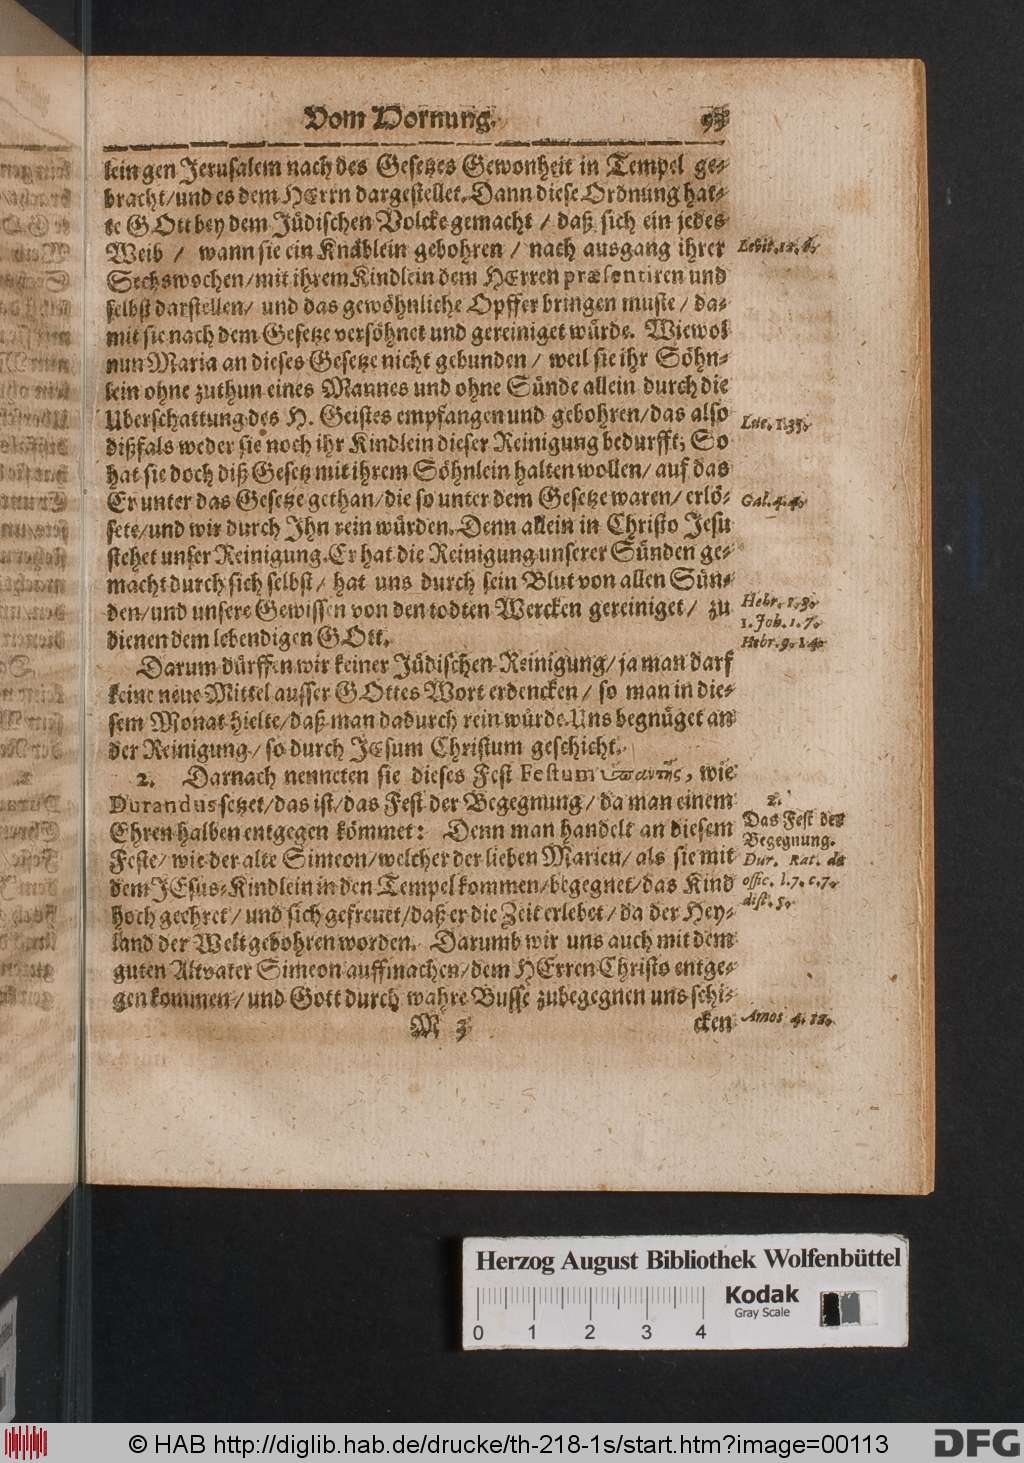 Vom Hornung. 93
lein gen Jerusalem nach des Gesetzes Gewonheit in Tempel ge-
bracht/ und es dem HErrn dargestellet. Dann diese Ordnung hat-
te GOtt bey dem Jüdischen Volcke gemacht / daß sich ein jedes
Weib / wann sie ein Knäblein gebohren / nach ausgang ihrer
Levit. 12. 6.
Sechswochen/ mit ihrem Kindlein dem HErren præsentiren und
selbst darstellen/ und das gewöhnliche Opffer bringen muste/ da-
mit sie nach dem Gesetze versöhnet und gereiniget würde. Wiewol
nun Maria an dieses Gesetze nicht gebunden / weil sie ihr Söhn-
lein ohne zuthun eines Mannes und ohne Sünde allein durch die
Uberschattung des H. Geistes empfangen und gebohren/ das also
Luc. 1. 35.
dißfals weder sie noch ihr Kindlein dieser Reinigung bedurfft; So
hat sie doch diß Gesetz mit ihrem Söhnlein halten wollen/ auf das
Er unter das Gesetze gethan/ die so unter dem Gesetze waren/ erlö-
Gal. 4. 4.
sete/ und wir durch Ihn rein würden. Denn allein in Christo Jesu
stehet unser Reinigung. Er hat die Reinigung unserer Sünden ge-
macht durch sich selbst/ hat uns durch sein Blut von allen Sün-
den/ und unsere Gewissen von den todten Wercken gereiniget/ zu
Hebr. 1. 3.
1. Joh. 1. 7.
dienen dem lebendigen GOtt.
Hebr. 9. 14.
Darum dürffen wir keiner Jüdischen Reinigung/ ja man darf
keine neue Mittel ausser GOttes Wort erdencken/ so man in die-
sem Monat hielte/ daß man dadurch rein würde. Uns begnüget an
der Reinigung/ so durch JEsum Christum geschicht.
2. Darnach nenneten sie dieses Fest Festum ὑπαντῆς, wie
Durandus setzet/ das ist/ das Fest der Begegnung/ da man einem
2.
Das Fest der
Begegnung.
Dur. Rat. de
offic. l. 7. c. 7.
dist. 5.
Ehren halben entgegen kömmet: Denn man handelt an diesem
Feste/ wie der alte Simeon/ welcher der lieben Marien/ als sie mit
dem JEsus-Kindlein in den Tempel kommen/ begegnet/ das Kind
hoch geehret/ und sich gefreuet/ daß er die Zeit erlebet/ da der Hey-
land der Welt gebohren worden. Darumb wir uns auch mit dem
guten Altvater Simeon auffmachen/ dem HErren Christo entge-
gen kommen/ und Gott durch wahre Busse zubegegnen uns schi-
Amos 4. 12.
M 3 cken
Herzog August Bibliothek Wolfenbüttel
0 1 2 3 4
Kodak
Gray Scale
© HAB http://diglib.hab.de/drucke/th-218-1s/start.htm?image=00113
DFG